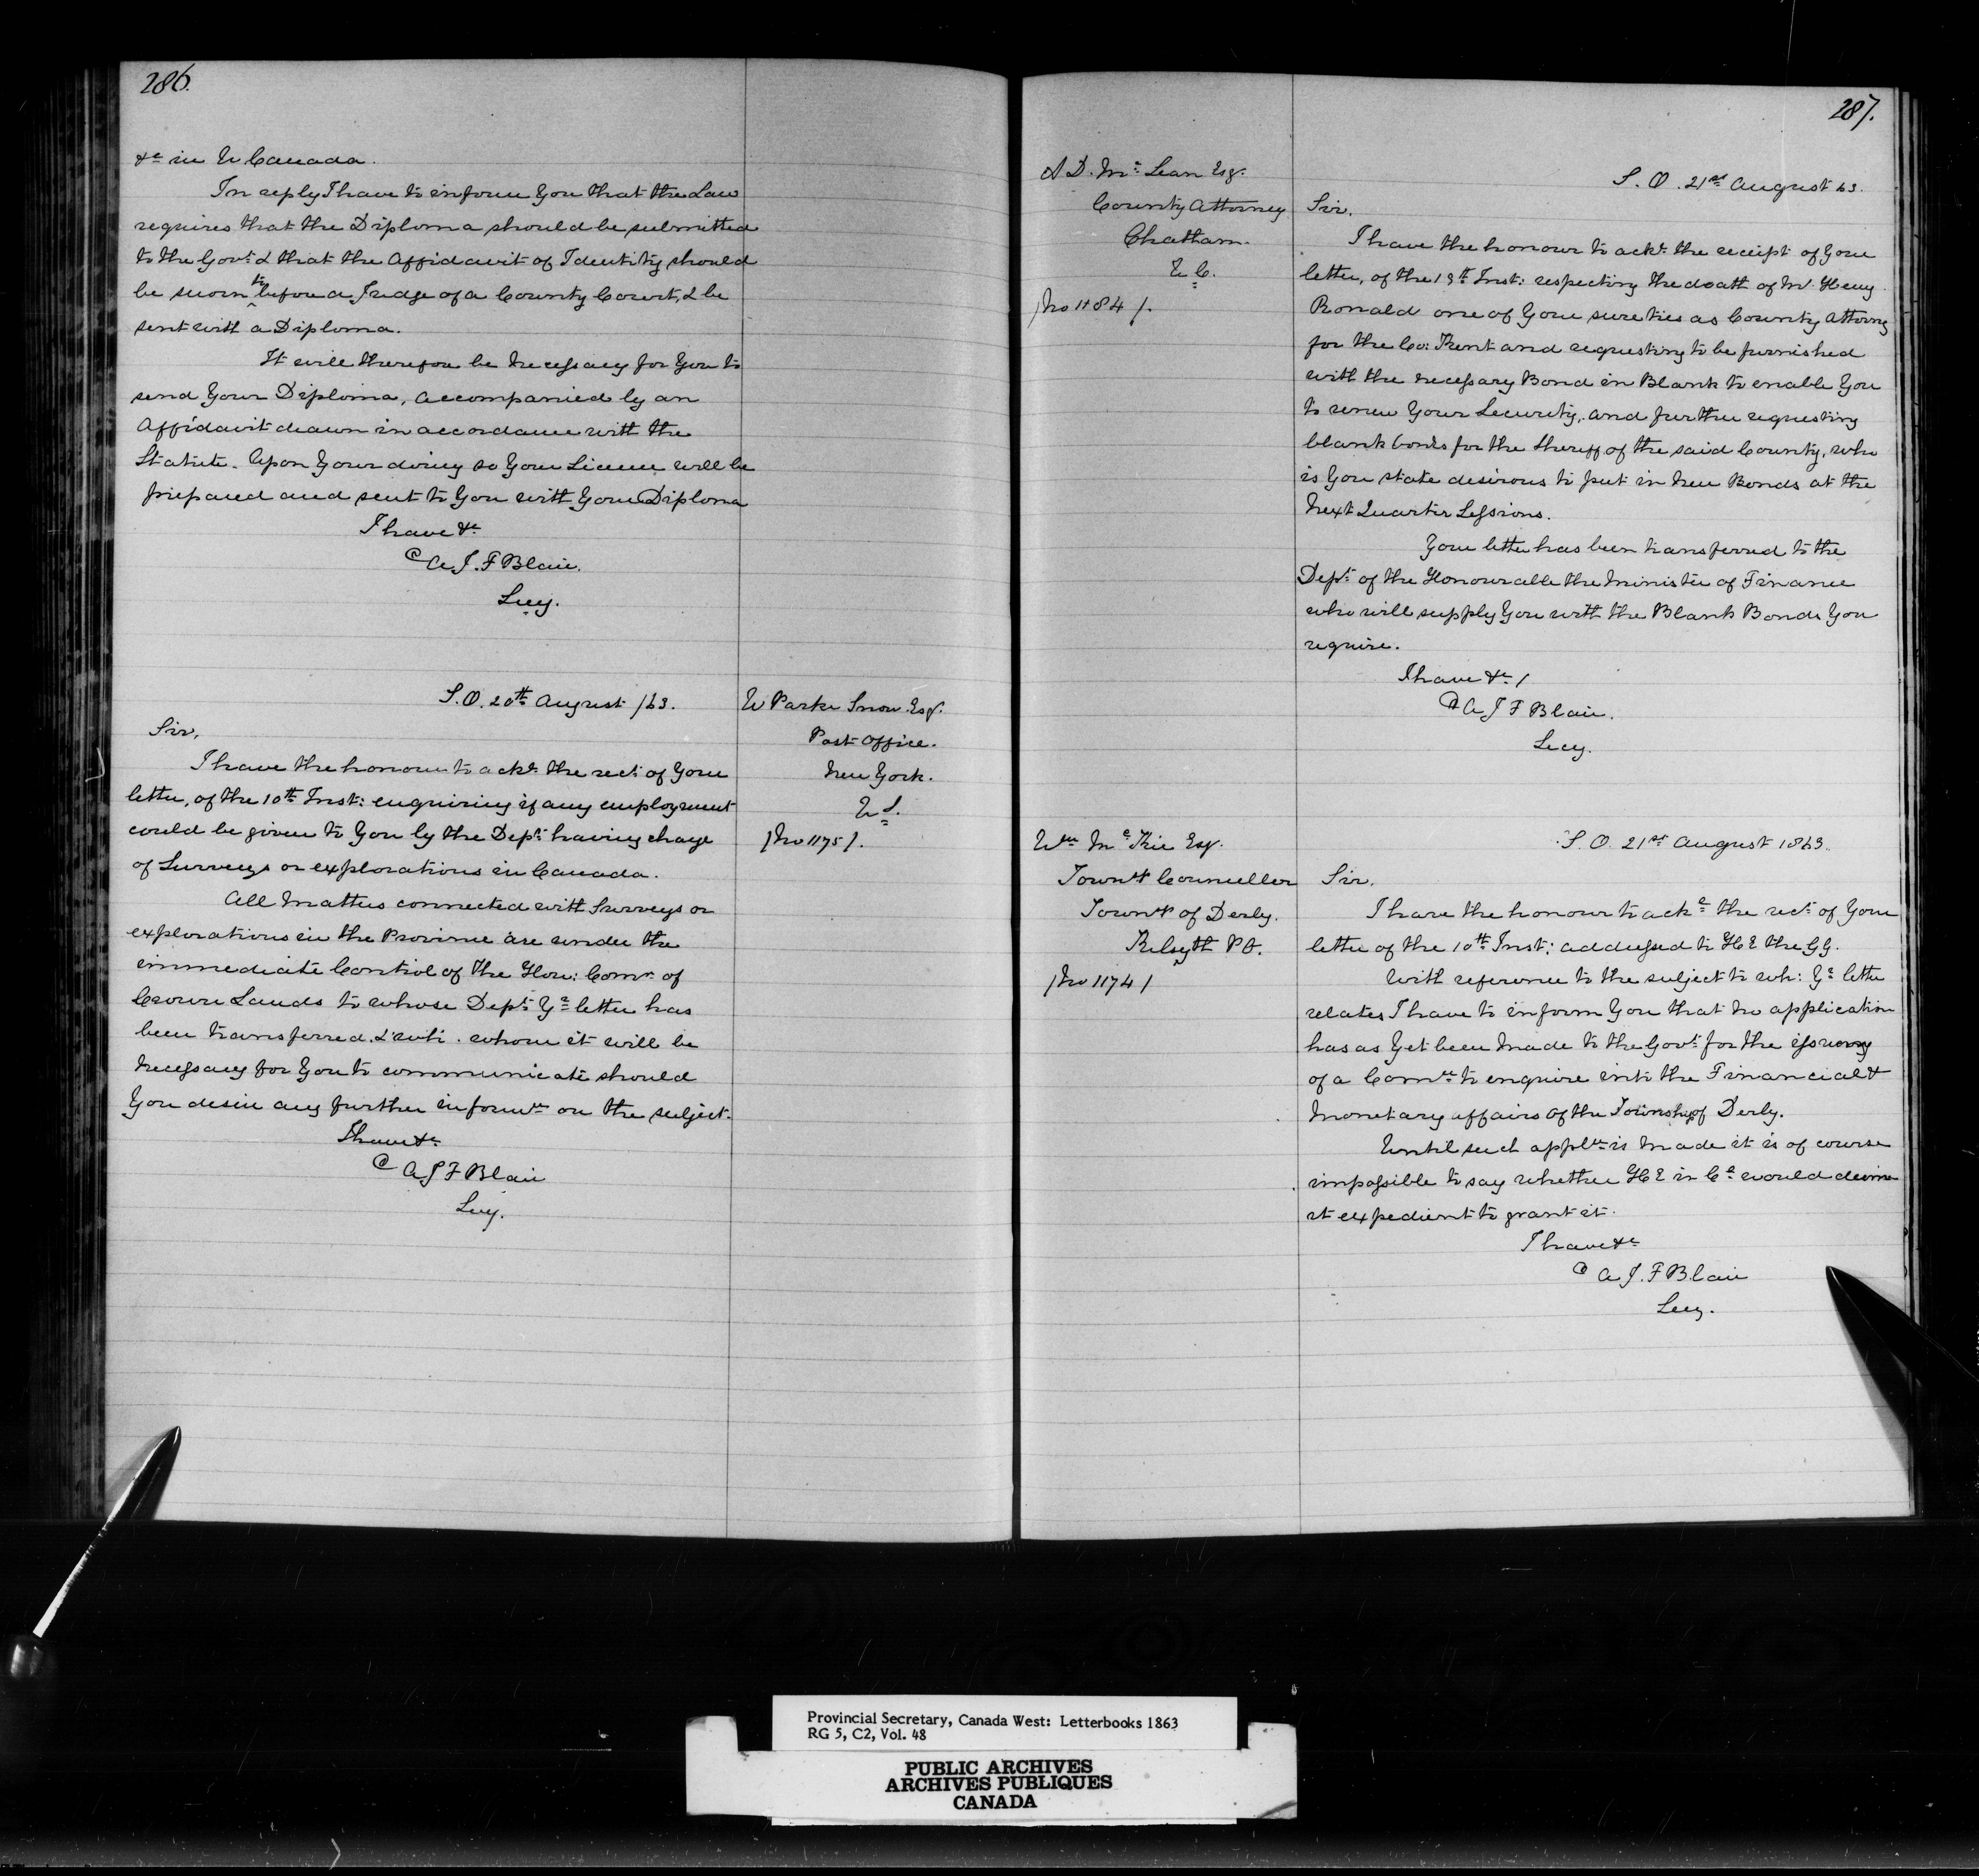 286.
&c in U Canada.
In reply I have to inform you that the Law
requires that the Diploma should be submitted
to the Govt & that the Affidavit of Identity should
be sworn to before a Judge of a County Court, & be
sent with a Diploma.
It will therefore be necessary for you to
send your Diploma, accompanied by an
Affidavit drawn in accordance with the
Statute. Upon your doing so your License will be
prepared and sent to you with your Diploma
I have &c
A. J. F Blair.
Secy.
S.O. 20th August /63.
W Parker Snow Esqr.
Post Office.
New York.
U S.
/No 1175/.
Sir,
I have the honour to ackr. the rect. of your
letter, of the 10th Inst: enquiring if any employment
could be given to you by the Dept. having charge
of Surveys or explorations in Canada.
All matters connected with Surveys or
explorations in the Province are under the
immediate Control of the Hon: Comr. of
Crown Lands to whose Dept. Yr letter has
been transferred. & with. whom it will be
necessary for you to communicate should
you desire any further informn on the subject.
I have &c
A J F Blair
Secy.
287.
A D. Mc Lean Esqr.
County Attorney
Chatham.
U C.
/No 1184/.
S. O. 21st August 63.
Sir.
I have the honour to ackr. the receipt of your
letter, of the 13th Inst: respecting the death of Mr. Henry
Ronald one of your sureties as County Attorney
for the Co: Kent and requesting to be furnished
with the necessary Bond in Blank to enable you
to renew your Security, and further requesting
blank bonds for the Sheriff of the said County, who
is you state desirous to put in new Bonds at the
next Quarter Sessions.
Your letter has been transferred to the
Dept. of the Honourable the Minister of Finance
who will supply you with the Blank Bonds you
require.
I have &c /
A J F Blair.
Secy.
Wm Mc Kie Esqr.
Townp Councillor
Townp of Derby.
Kilsyth P O.
/No 1174/
S. O. 21st August 1863.
Sir.
I have the honour to ack the rect. of your
letter of the 10th Inst: addressed to H E the G G.
With reference to the subject to wh: Yr letter
relates I have to inform you that no application
has as yet been made to the Govt. for the issuing
of a Comn to enquire into the Financial &
monetary affairs of the Township of Derby.
Until such appln is made it is of course
impossible to say whether H E in Cl would deem
it expedient to grant it.
I have &c
A. J. F Blair
Secy.
Provincial Secretary, Canada West: Letterbooks 1863
RG 5, C2, Vol. 48
PUBLIC ARCHIVES
ARCHIVES PUBLIQUES
CANADA